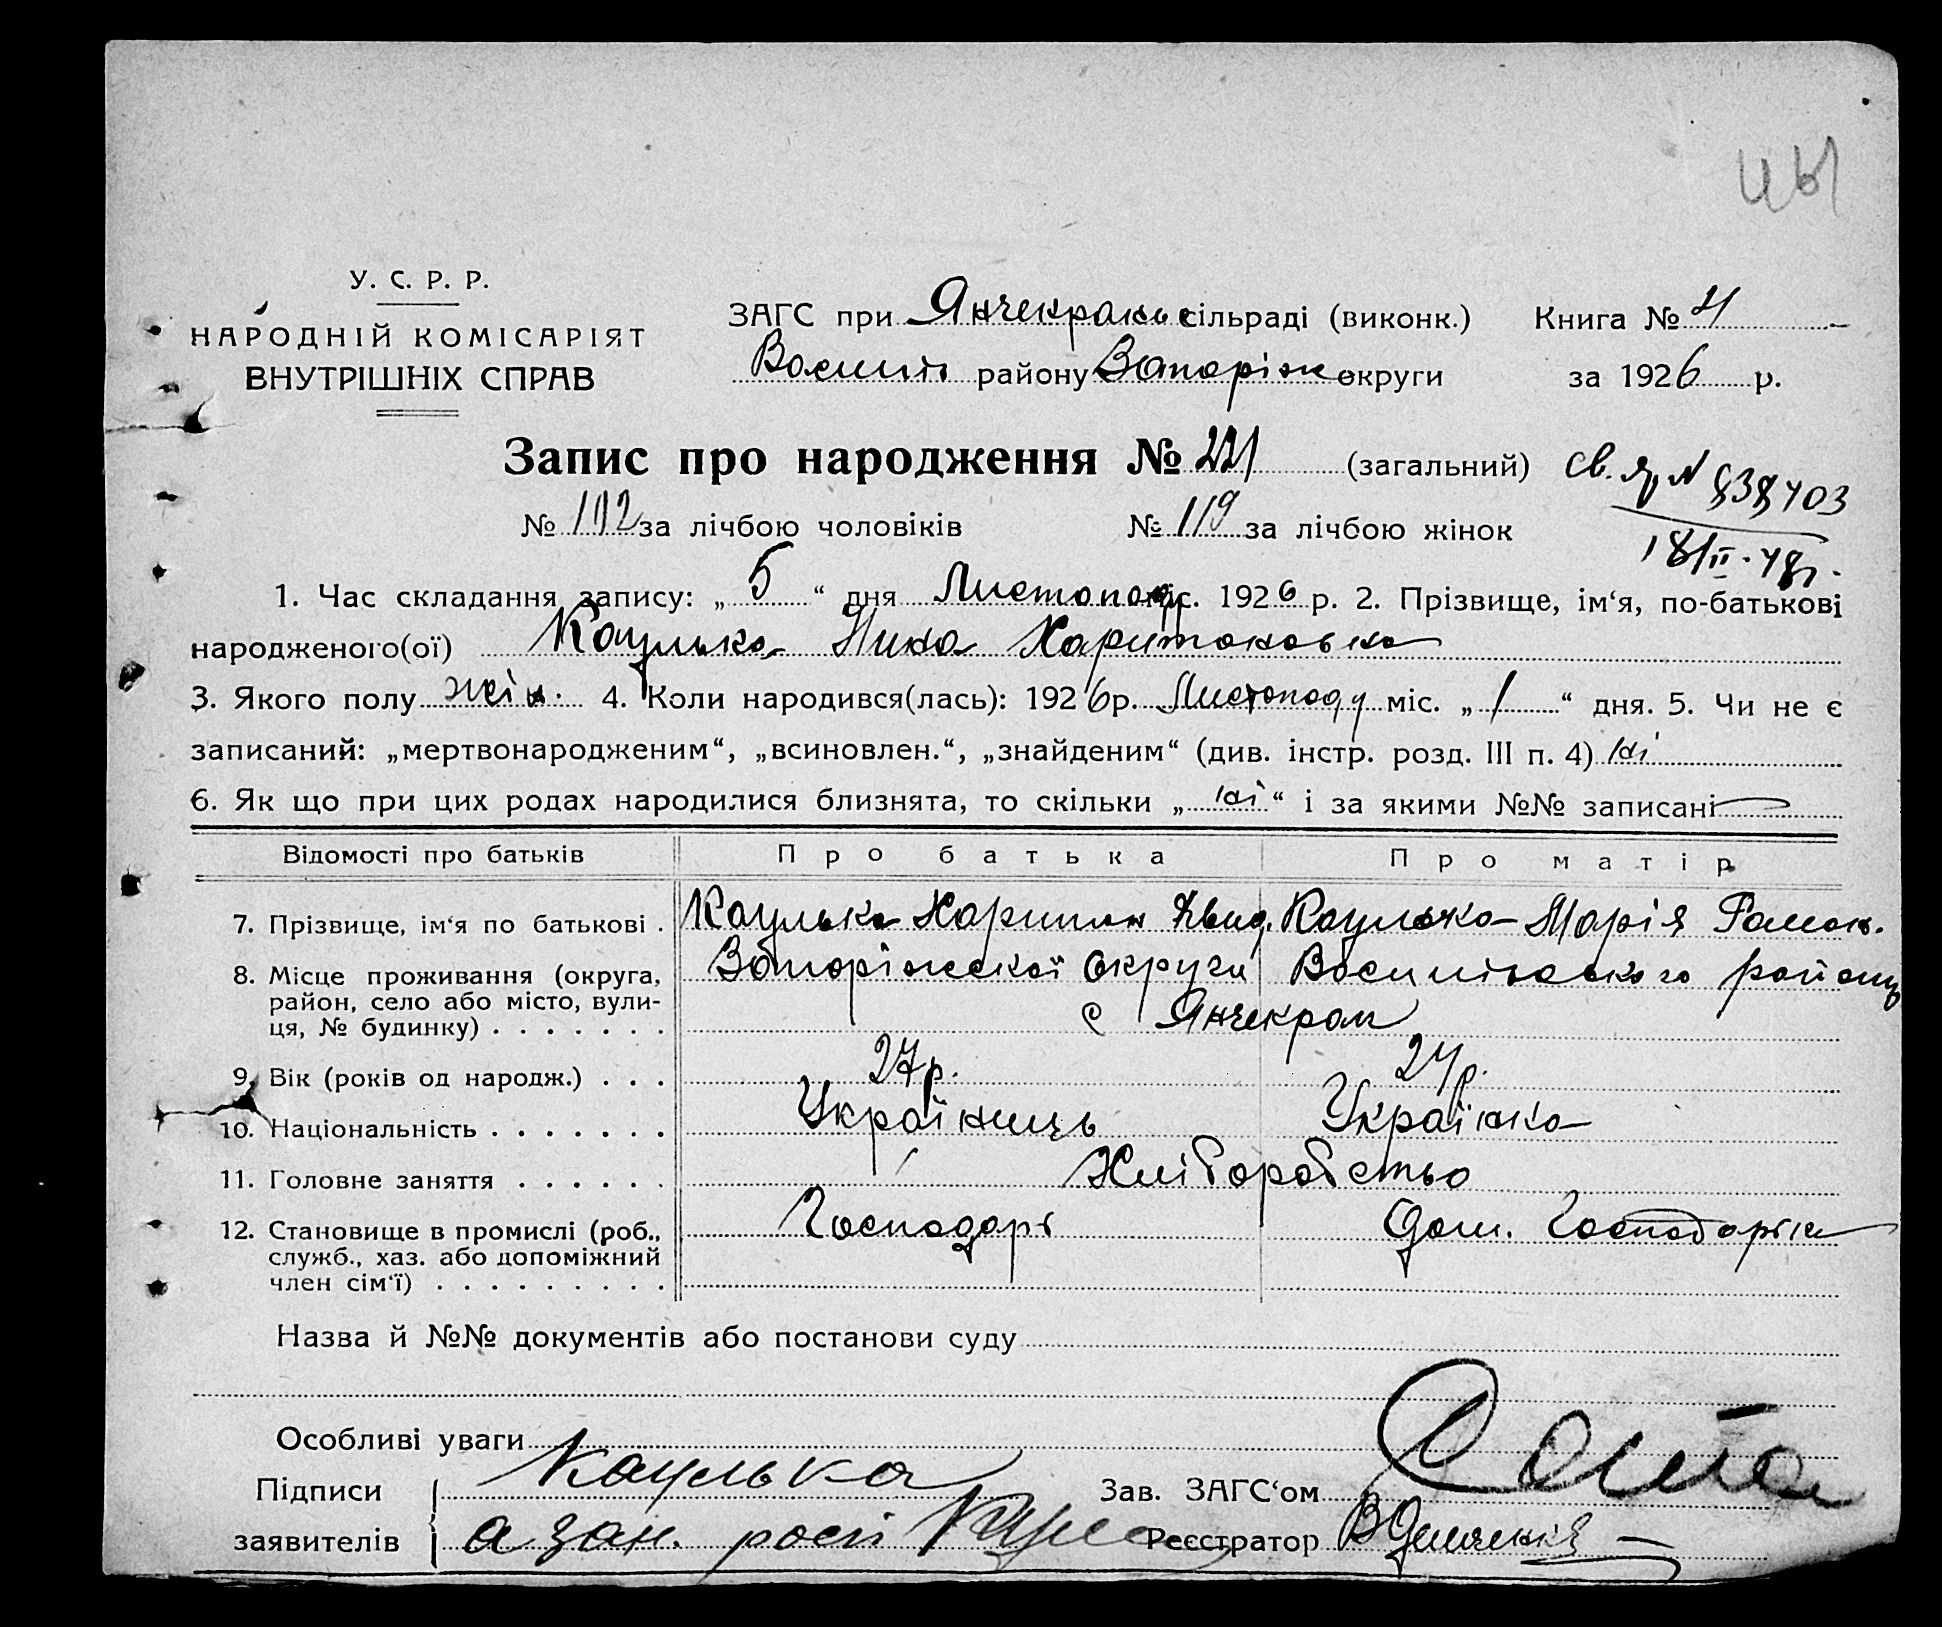 У. С. Р. Р.
НАРОДНІЙ КОМІСАРІЯТ
ВНУТРІШНІХ СПРАВ
ЗАГС при Янчекракс сільраді (виконк.) Книга № 4
Васил району Запоріж округи за 1926 р.
Запис про народження № 221 (загальний)
св. Яр N 838403
№ 102 за лічбою чоловіків № 119 за лічбою жінок
18/II-48г.
1. Час складання запису: „ 5 “ дня Листопаду міс. 1926 р. 2. Прізвище, ім‘я, по-батькові
народженого(ої) Кацулька Нина Харитоновна
3. Якого полу жін. 4. Коли народився(лась): 1926 р. Листопаду міс. „ 1 “ дня. 5. Чи не є
записаний: „мертвонародженим“, „всиновлен.“, „знайденим“ (див. інстр. розд. III п. 4) ні
6. Як що при цих родах народилися близнята, то скільки „ ні “ і за якими №№ записані
Відомості про батьків Про батька Про матір
7. Прізвище, ім‘я по батькові . Кацулька Харитон Авид. Кацулька Марія Роман.
8. Місце проживання (округа, район, село або місто, вулиця, № будинку) Запоріжської округи Василівського району
с Янчекрак
9. Вік (років од народж.) . . . 27р. 24р.
10. Національність Українець Українка
11. Головне заняття Хліборобство
12. Становище в промислі (роб., Господарь Дом. Господарка
служб., хаз. або допоміжний
член сім‘ї)
Назва й №№ документів або постанови суду
Особливі уваги
Підписи Кацулька Зав. ЗАГС‘ом
заявителів а зан. росп Реєстратор